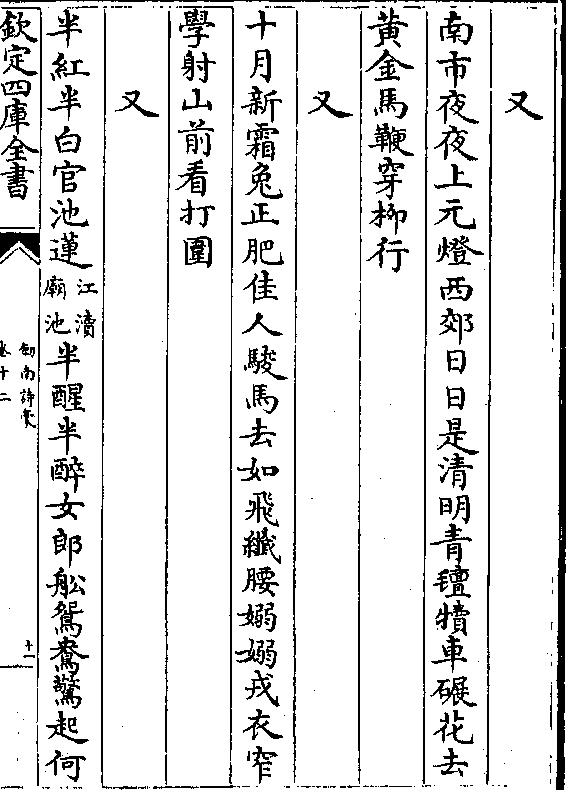 又
南市夜夜上元燈西郊日日是清明青氊犢車碾花去
黃金馬鞭穿柳行
又
十月新霜兔正肥佳人駿馬去如飛纖腰嫋嫋戎衣窄
學射山前看打圍
又
半紅半白官池蓮江瀆廟池半醒半醉女郎船鴛鴦驚起何
欽定四庫全書
劍南詩稾
卷十二
十一